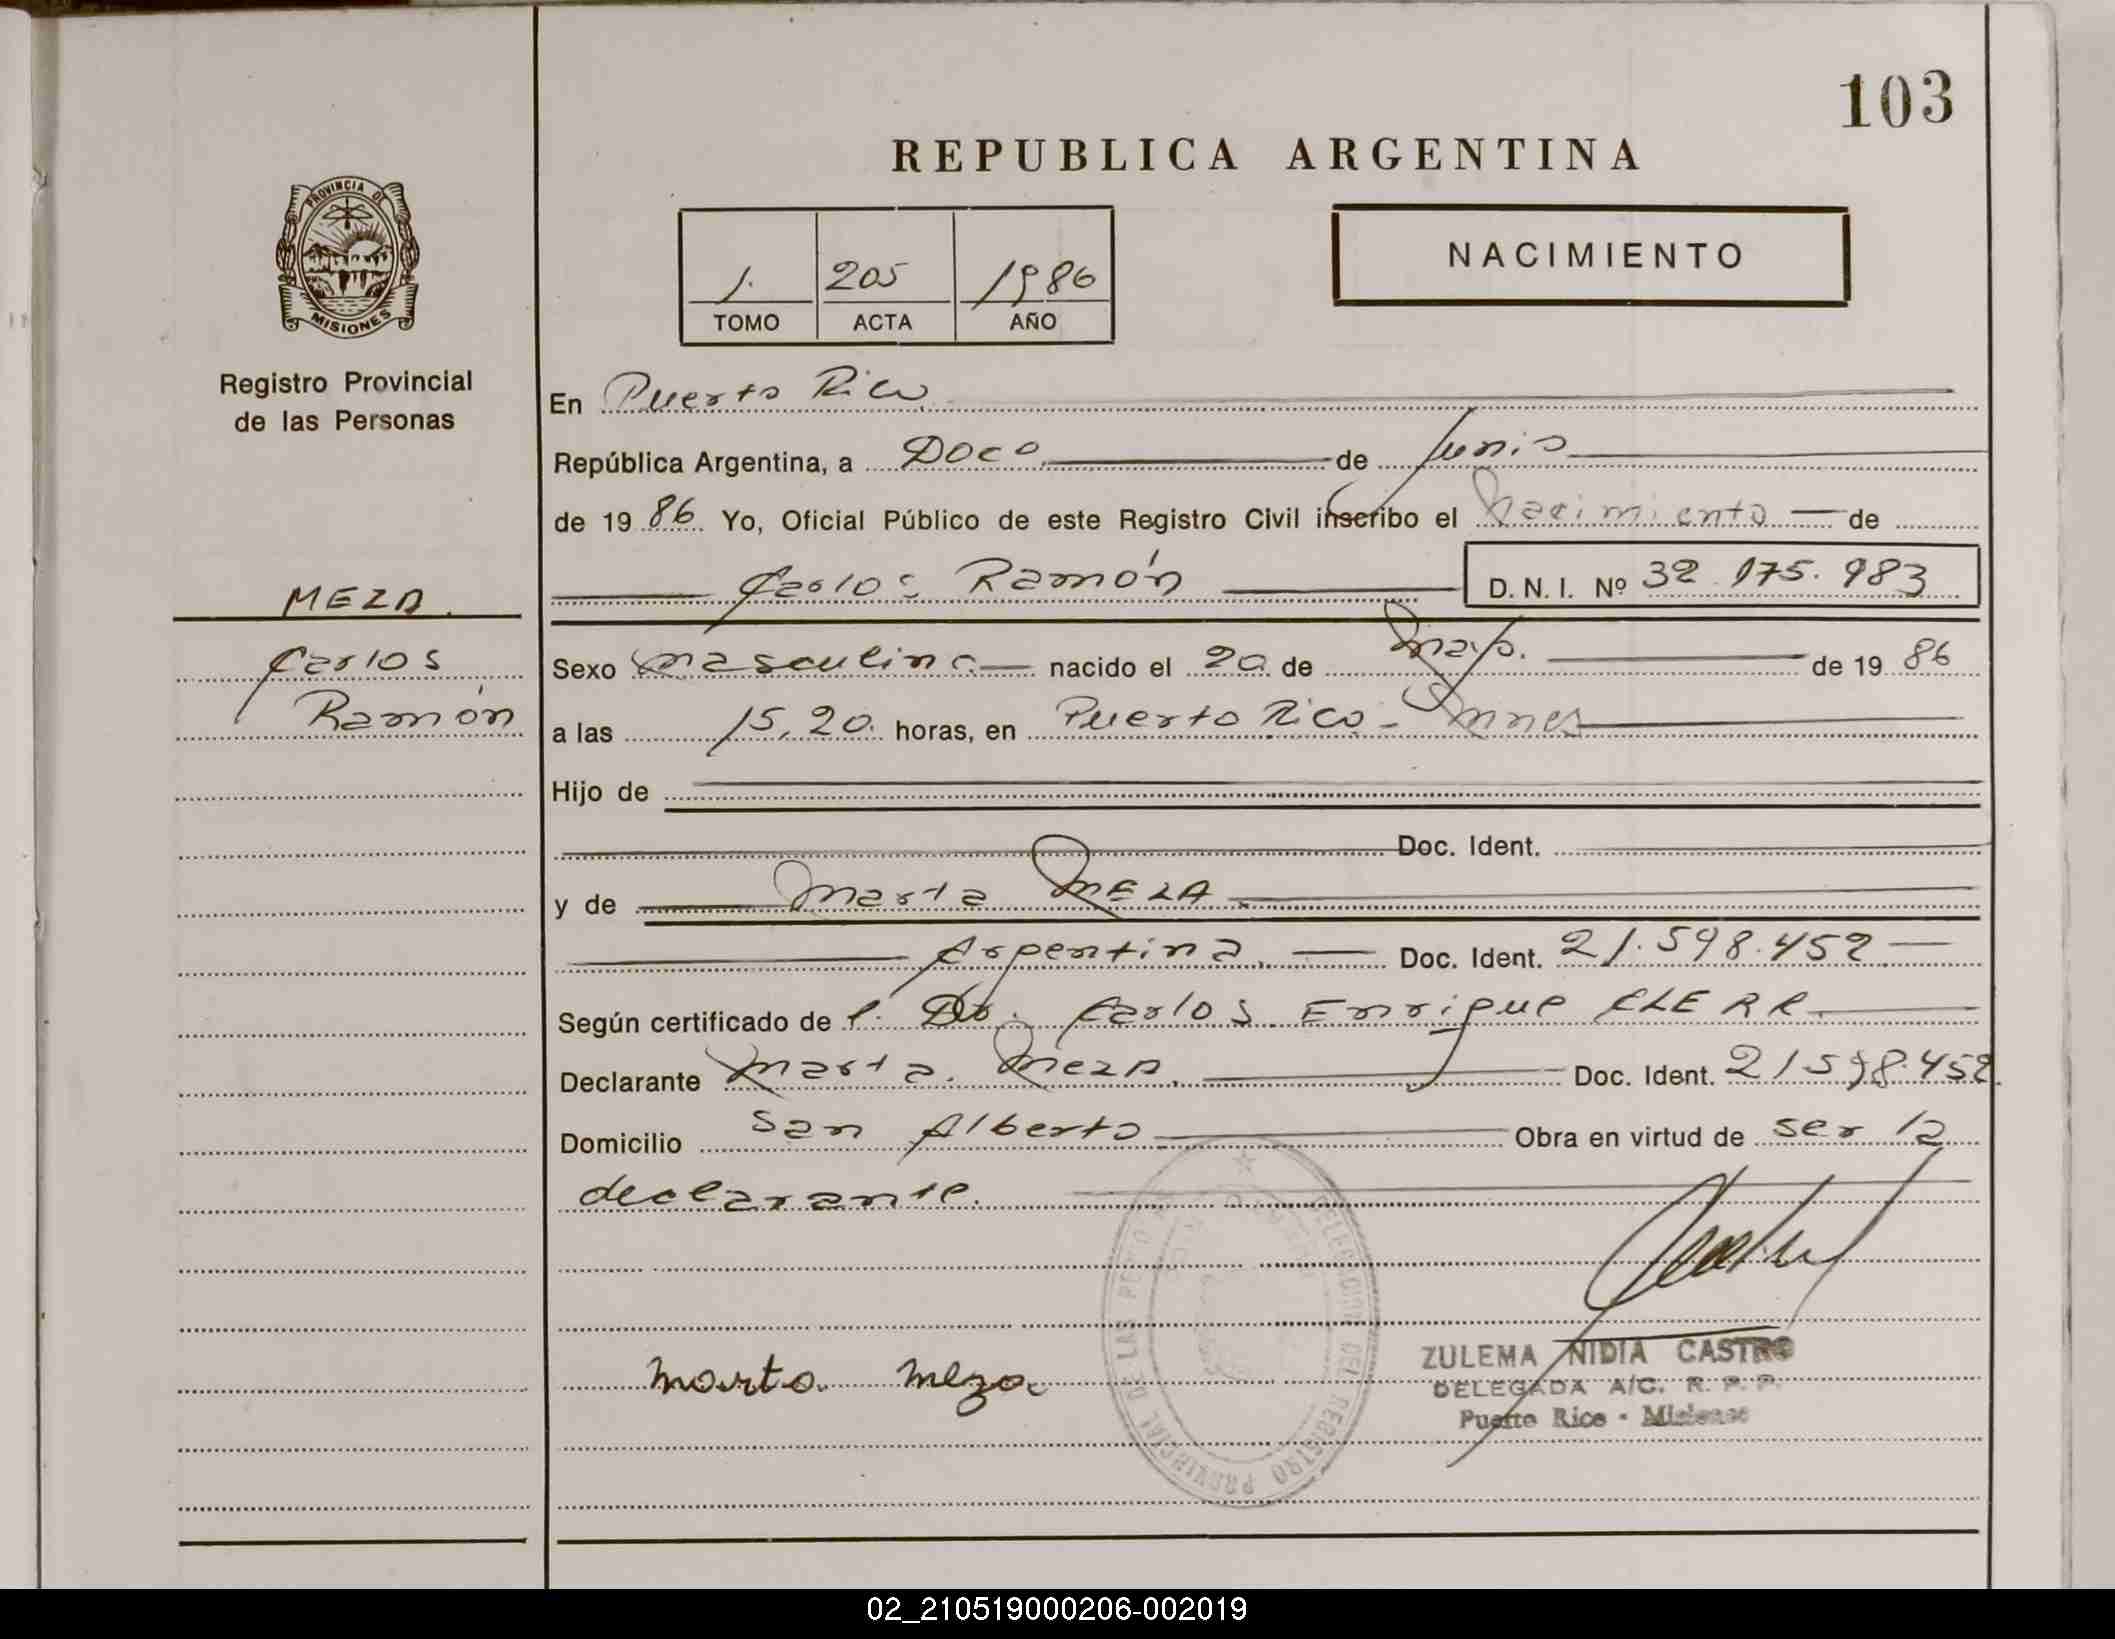 103
REPUBLICA ARGENTINA
PROVINCIA DE
MISIONES
Registro Provincial
de las Personas
1. 205 1986
TOMO ACTA AÑO
NACIMIENTO
En Puerto Rico
República Argentina, a Doce de Junio
de 1986. Yo, Oficial Público de este Registro Civil inscribo el Nacimiento de
Carlos Ramón D. N. I. Nº 32.175.983
MEZA
Carlos
Ramón
Sexo masculino nacido el 20 de mayo. de 1986
a las 15,20. horas, en Puerto Rico - Mnes
Hijo de
Doc. Ident.
y de Marta MEZA
Argentina. Doc. Ident. 21.598.452
Según certificado de l. Dr. Carlos Enrique CLERR.
Declarante Marta Meza. Doc. Ident. 21598.452.
Domicilio San Alberto Obra en virtud de ser la
declarante.
marta meza
ZULEMA NIDIA CASTRO
DELEGADA A/C. R. P. P.
Puerto Rico - Misiones
DELEGACION DEL REGISTRO PROVINCIAL DE LAS
02_210519000206-002019